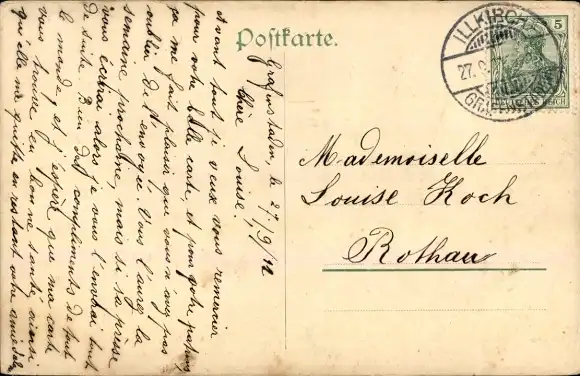 Postkarte.
ILLKIRCH
27.
5
Mademoiselle
Louise Koch
Rothau
Grafenstaden, le 27/9/12
Chère Louise.
Avant tout je veux vous remercier
pour votre belle carte, et pour votre
ça me fait plaisir que vous n'avez pas
oublier de l'envoyer. Vous l'aurez la
semaine prochaine, mais si sa presse
vous écrirai alors je vous l'invrai tout
de suite. Bien des compliments de tout
le monde, et j'espère que ma carte
vous trouve en bonne santé ainsi
qu'elle me quitte en restant votre amie